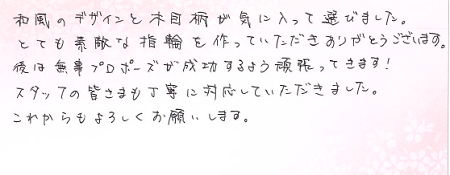 和風のデザインと木目柄が気に入って選びました。
とても素敵な指輪を作っていただきありがとうございます。
後は無事プロポーズが成功するよう頑張ってきます!
スタッフの皆さまも丁寧に対応していただきました。
これからもよろしくお願いします。